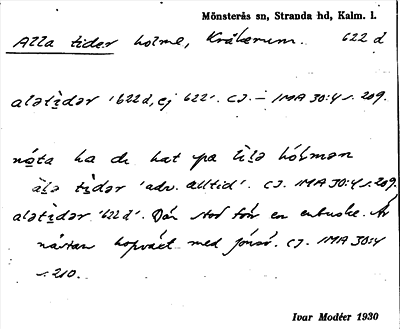 Mönsterås sn, Stranda hd, Kalm. l.
Alla tider holme, Kråkerum. 622 d
alətịdər '622d, ej 622'. CJ. – IMA 30:4 s. 209.
nạ̊ta ha de hat pa lilə hólmən
alə tịdər 'adv. alltid'. CJ. IMA 30:4 s. 209.
alətịdər '622d'. Där stod förr en enbuske. Är
nästan hopväxt med CJ. IMA 30:4
s. 210.
Ivar Modéer 1930